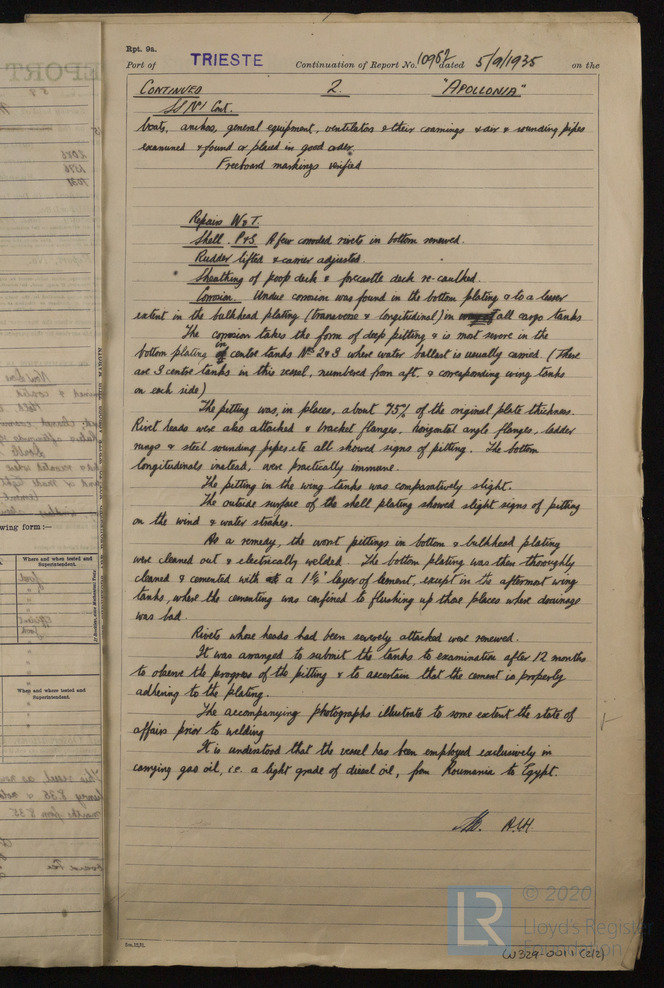 Rpt. 9a.
Port of TRIESTE Continuation of Report No. 10962 dated 5/9/1935 on the
CONTINUED 2. "APOLLONIA"
SS No1 Cont.
boats, anchors, general equipment, ventilators & their coamings & air & sounding pipes
examined & found or placed in good order.
Freeboard markings verified
Repairs W&T.
Shell. P&S. A few corroded rivets in bottom renewed.
Rudder lifted & carrier adjusted.
Sheathing of poop deck & forecastle deck re-caulked.
Corrosion. Undue corrosion was found in the bottom plating & to a lesser
extent in the bulkhead plating (transverse & longitudinal) in all cargo tanks
The corrosion takes the form of deep pitting & is most severe in the
bottom plating in centre tanks Nos 2 & 3 where water ballast is usually carried. (There
are 3 centre tanks in this vessel, numbered from aft. & corresponding wing tanks
on each side)
The pitting was, in places, about 75% of the original plate thickness.
Rivet heads were also attacked & bracket flanges, horizontal angle flanges, ladder
rungs & steel sounding pipes etc all showed signs of pitting. The bottom
longitudinals instead, were practically immune.
The pitting in the wing tanks was comparatively slight.
The outside surface of the shell plating showed slight signs of pitting
on the wind & water strakes.
As a remedy, the worst pittings in bottom & bulkhead plating
were cleaned out & electrically welded. The bottom plating was then thoroughly
cleaned & cemented with a layer of cement, except in the aftermost wing
tanks, where the cementing was confined to flushing up those places where drainage
was bad.
Rivets whose heads had been severely attacked were renewed.
It was arranged to submit the tanks to examination after 12 months
to observe the progress of the pitting & to ascertain that the cement is properly
adhering to the plating.
The accompanying photographs illustrate to some extent the state of
affairs prior to welding
It is understood that the vessel has been employed exclusively in
carrying gas oil, i.e. a light grade of diesel oil, from Roumania to Egypt.
wing form:—
Where and when tested and
Superintendent.
When and where tested and
Superintendent.
© 2020
LR Lloyd's Register
Foundation
W329-0011 (2/2)